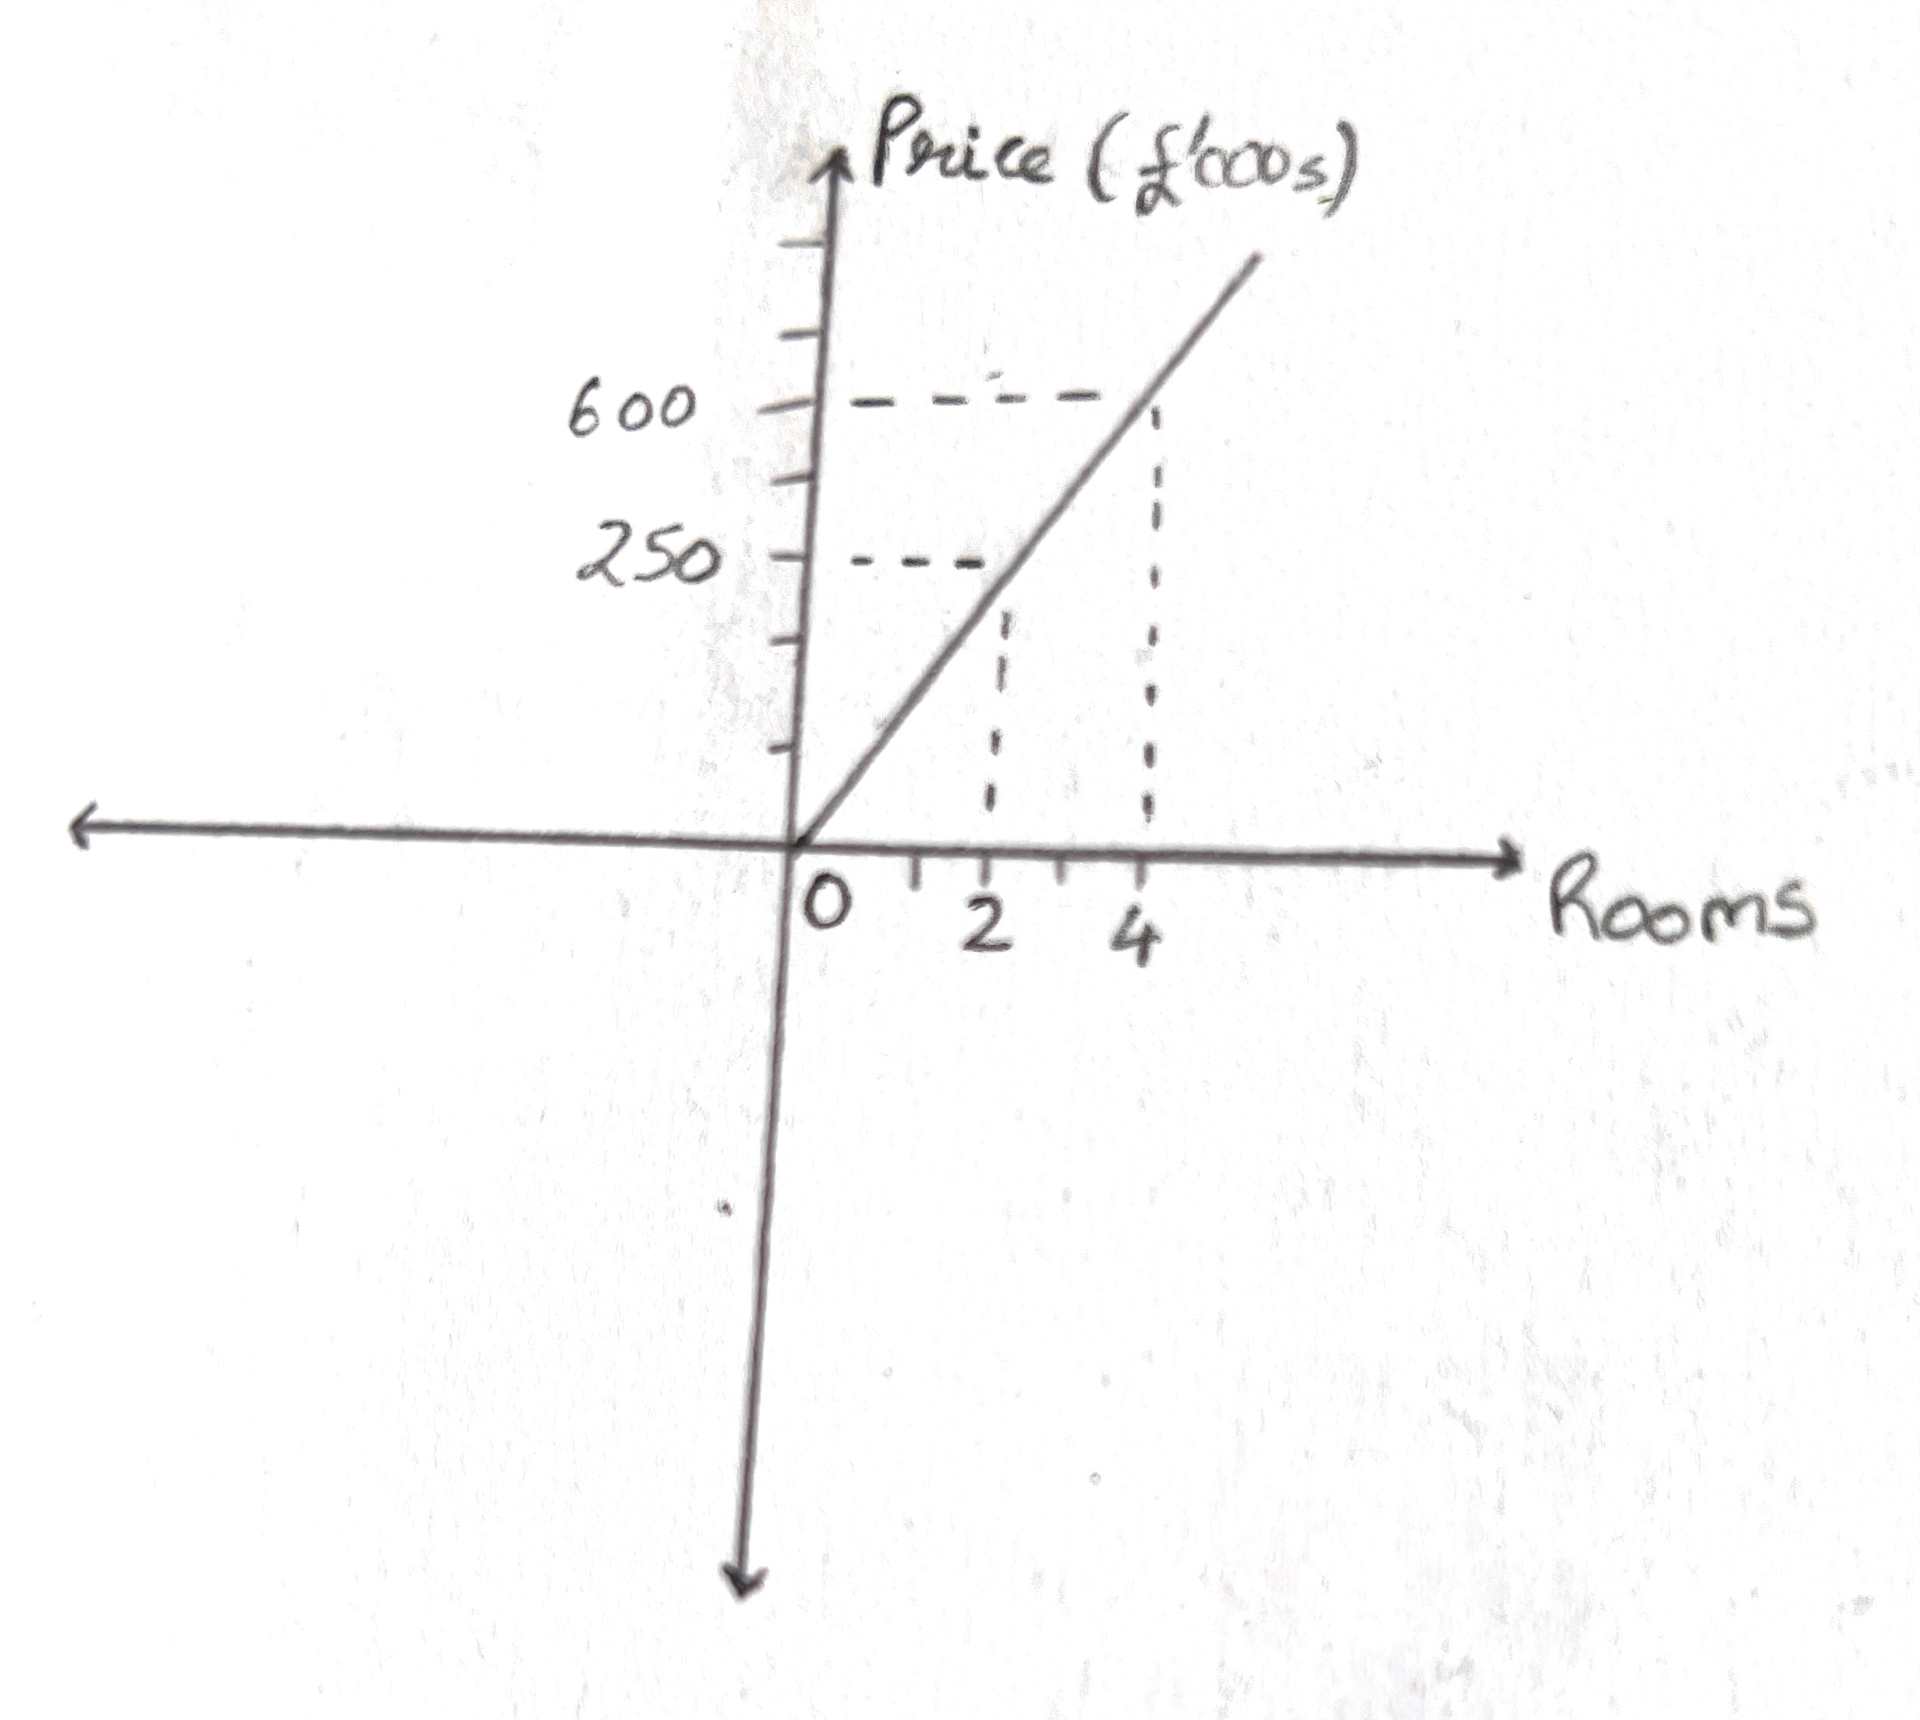 Price (£'000s)
600
250
0 2 4 Rooms